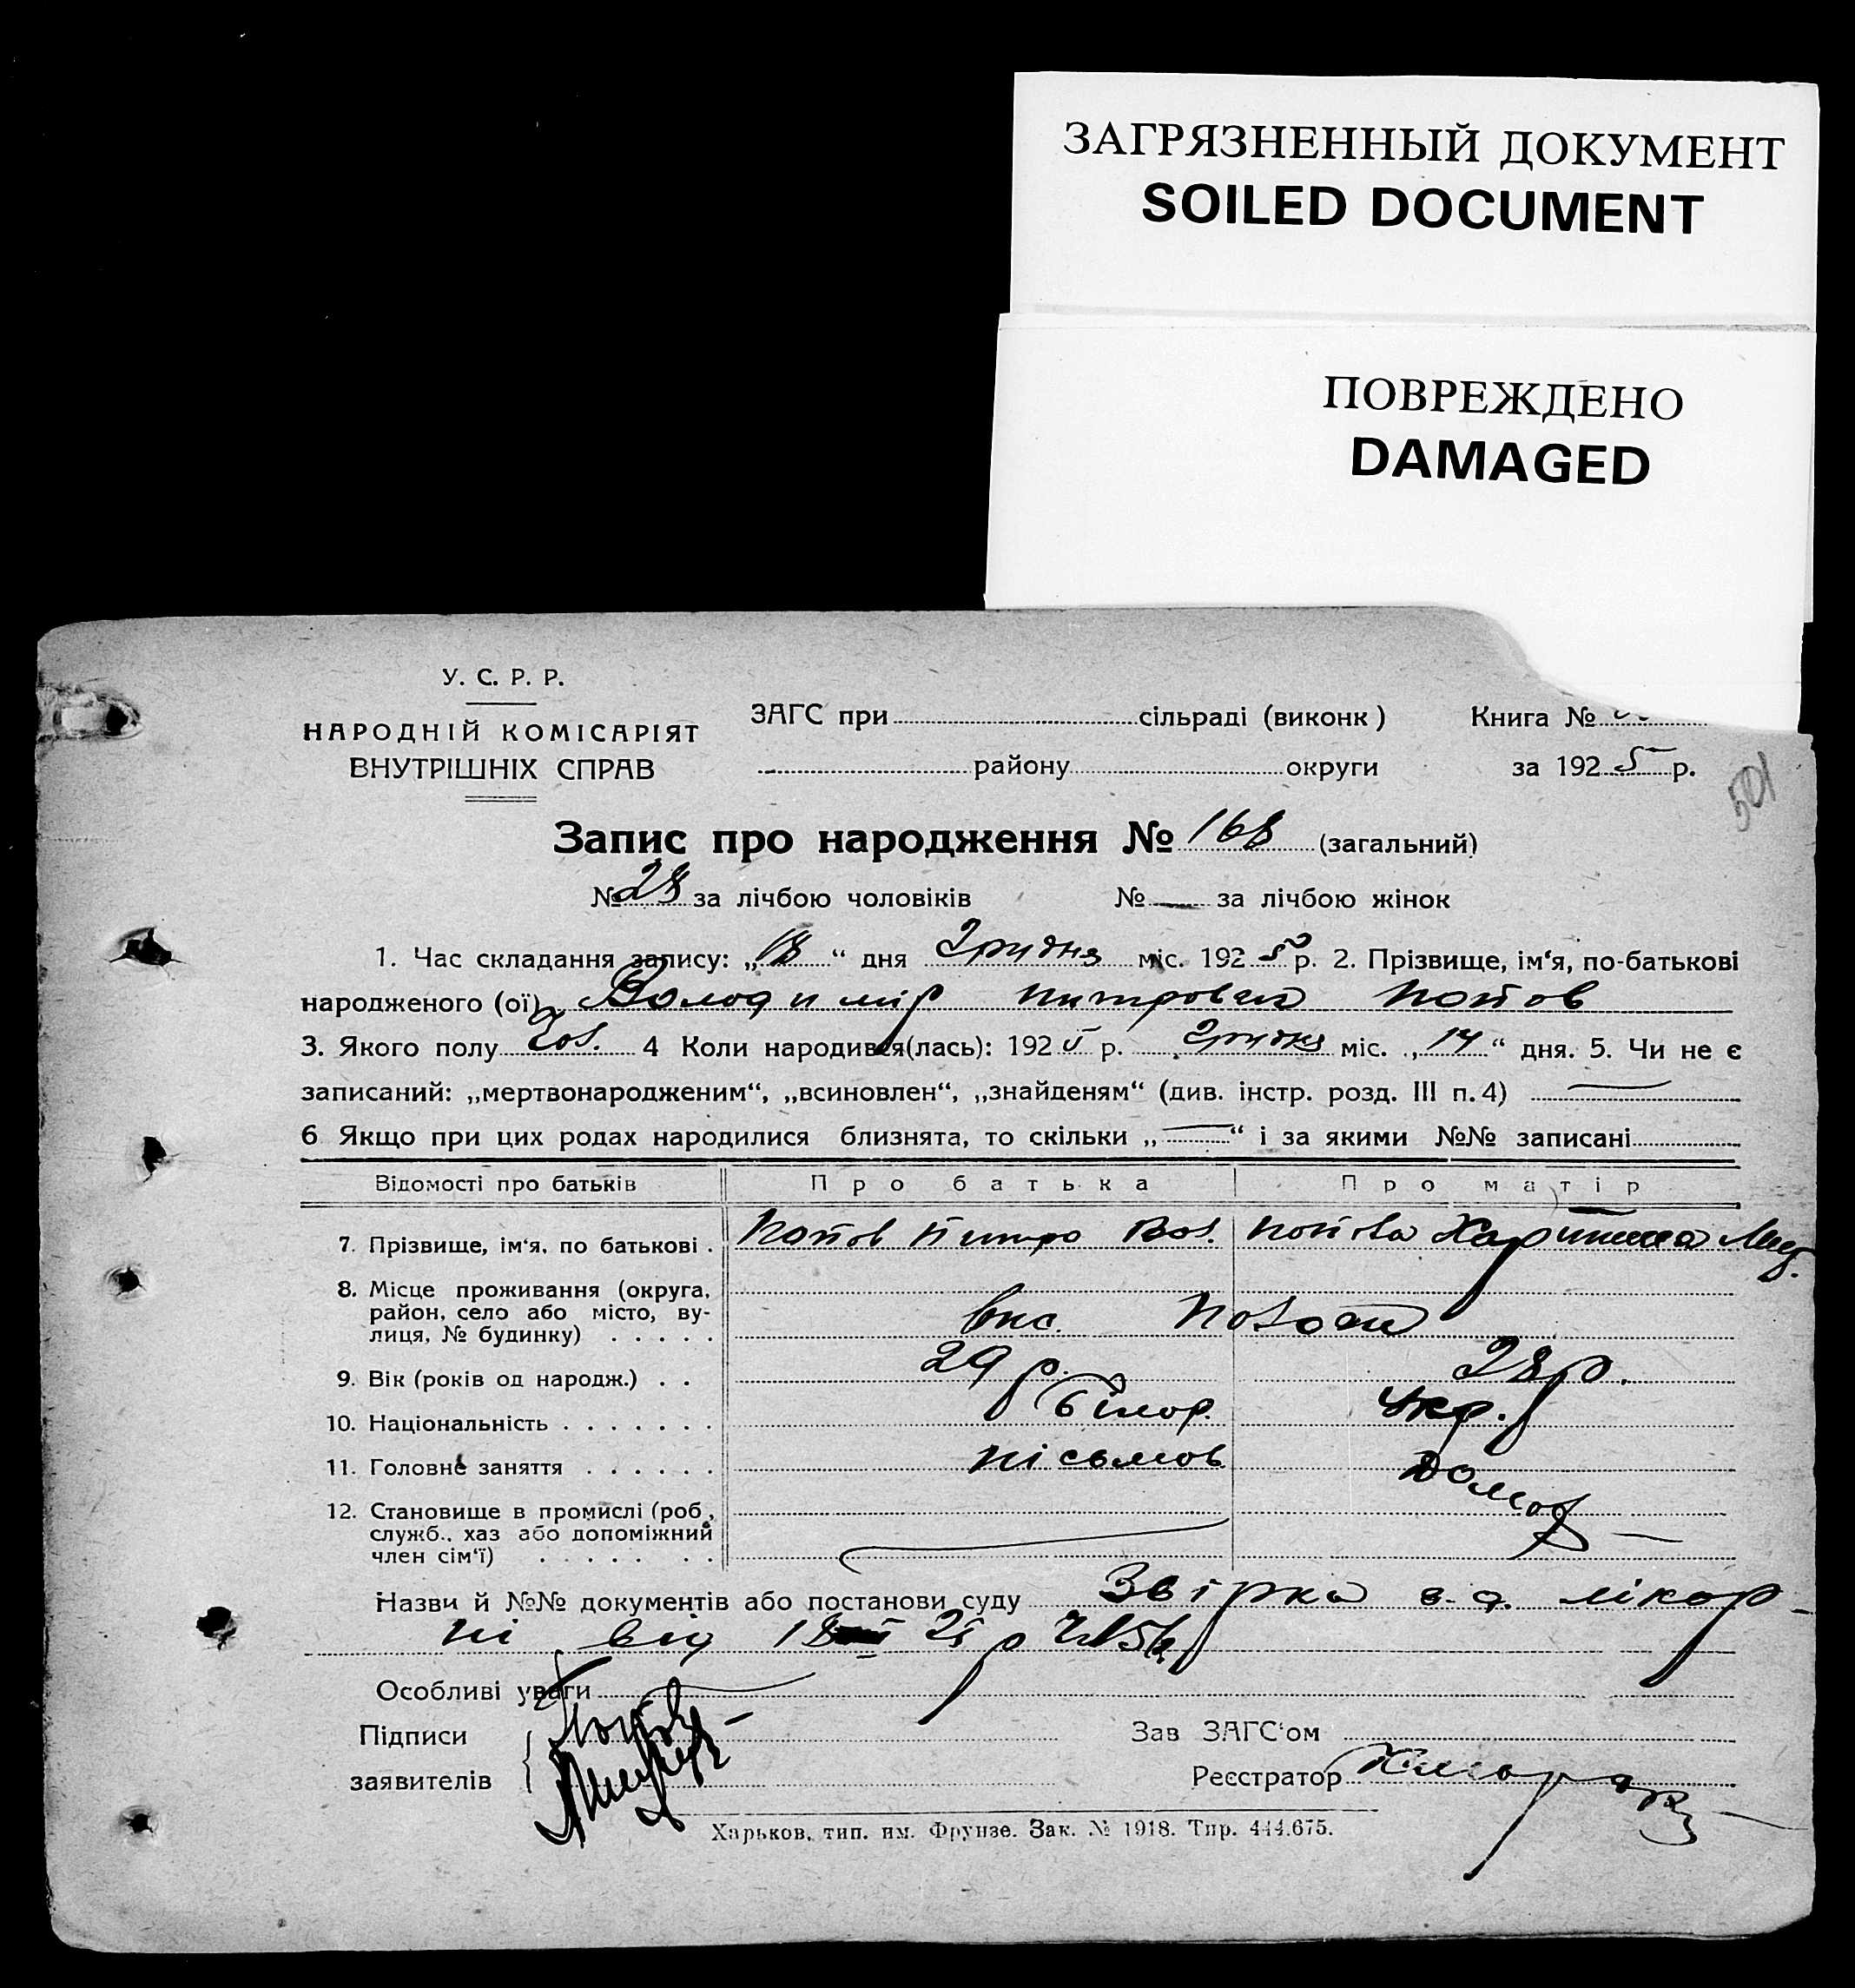 ЗАГРЯЗНЕННЫЙ ДОКУМЕНТ
SOILED DOCUMENT
ПОВРЕЖДЕНО
DAMAGED
У. С. Р. Р.
НАРОДНІЙ КОМІСАРІЯТ
ВНУТРІШНІХ СПРАВ
ЗАГС при сільраді (виконк)
району округи
Книга №
за 1925 р.
501
Запис про народження № 168 (загальний)
№ 28 за лічбою чоловіків № — за лічбою жінок
1. Час складання запису: „18“ дня Грудня міс. 1925 р. 2. Прізвище, ім‘я, по-батькові
народженого (ої) Володимір Питрович Попов
3. Якого полу Чол. 4 Коли народився(лась): 1925 р. Грудня міс. „14“ дня. 5. Чи не є
записаний: „мертвонародженим“, „всиновлен“, „знайденям“ (див. інстр. розд. III п. 4) —
6 Якщо при цих родах народилися близнята, то скільки „—“ і за якими №№ записані
Відомості про батьків Про батька Про матір
7. Прізвище, ім‘я, по батькові . Попов Питро Вас. Попова Харитина
8. Місце проживання (округа,
район, село або місто, ву-
лиця, № будинку) . . . . .
9. Вік (років од народж.) . . 29 р. 28 р.
10. Національність . . . . . . . білор. Укр.
11. Головне заняття . . . . . . пісьмов. Домог
12. Становище в промислі (роб.,
служб., хаз або допоміжний
член сім‘ї) . . . . . . . —
Назви й №№ документів або постанови суду Звірка лікар-
ні від 18 25 р
Особливі уваги —
Підписи Попов
заявителів
Зав ЗАГС‘ом
Реєстратор
Харьков, тип. им. Фрунзе. Зак. № 1918. Тир. 444.675.